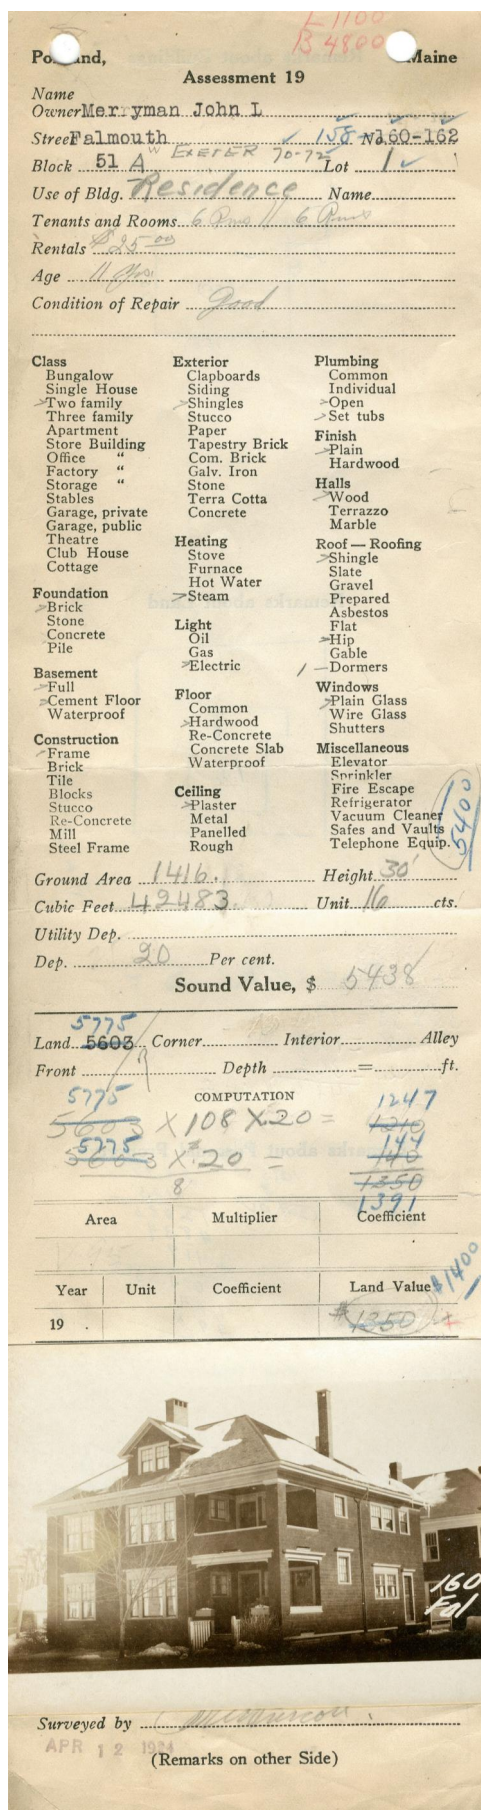 L 1100
B 4800
Portland, Maine
Assessment 19
Name
Owner Merryman John L
Street Falmouth 158- No. 160-162
Block 51 A W EXETER 70-72 Lot 1
Use of Bldg. Residence Name
Tenants and Rooms 6 Rms // 6 Rms
Rentals $25.00
Age 11 yrs
Condition of Repair Good
Class
Bungalow
Single House
Two family
Three family
Apartment
Store Building
Office "
Factory "
Storage "
Stables
Garage, private
Garage, public
Theatre
Club House
Cottage
Foundation
Brick
Stone
Concrete
Pile
Basement
Full
Cement Floor
Waterproof
Construction
Frame
Brick
Tile
Blocks
Stucco
Re-Concrete
Mill
Steel Frame
Exterior
Clapboards
Siding
Shingles
Stucco
Paper
Tapestry Brick
Com. Brick
Galv. Iron
Stone
Terra Cotta
Concrete
Heating
Stove
Furnace
Hot Water
Steam
Light
Oil
Gas
Electric
Floor
Common
Hardwood
Re-Concrete
Concrete Slab
Waterproof
Ceiling
Plaster
Metal
Panelled
Rough
Plumbing
Common
Individual
Open
Set tubs
Finish
Plain
Hardwood
Halls
Wood
Terrazzo
Marble
Roof — Roofing
Shingle
Slate
Gravel
Prepared
Asbestos
Flat
Hip
Gable
1 — Dormers
Windows
Plain Glass
Wire Glass
Shutters
Miscellaneous
Elevator
Sprinkler
Fire Escape
Refrigerator
Vacuum Cleaner
Safes and Vaults
Telephone Equip.
5400
Ground Area 1416. Height 30'
Cubic Feet 42483 Unit 16 cts.
Utility Dep.
Dep. 20 Per cent.
Sound Value, $ 5438
5775
Land 5603 Corner Interior Alley
Front Depth = ft.
COMPUTATION
5775 1247
5603 X 108 X .20 = 1210
5775 144
5603 X .20 = 140
8 1350
1391
Area Multiplier Coefficient
Year Unit Coefficient Land Value $1400
19 . $1350
160
Fal
Surveyed by
APR 12 1924
(Remarks on other Side)